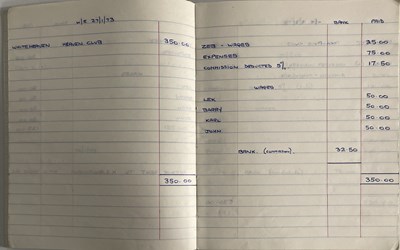 W/E 27/1/73
WHITEHAVEN 350.00
BANK PAID
WAGES 35.00
EXPENSES 75.00
COMMISSION DEDUCTED 5% 17.50
WAGES
LEX 50.00
BARRY 50.00
KARL 50.00
JOHN 50.00
BANK. 32.50
350.00
350.00